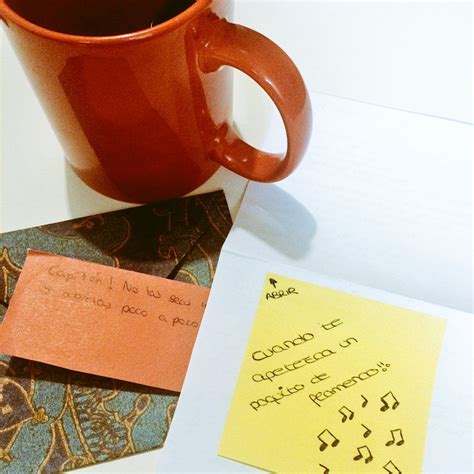 Capitán! No los seas
y abrelas poco a poco
ABRIR
cuando te
apetezca un
poquito de
flamenco!!